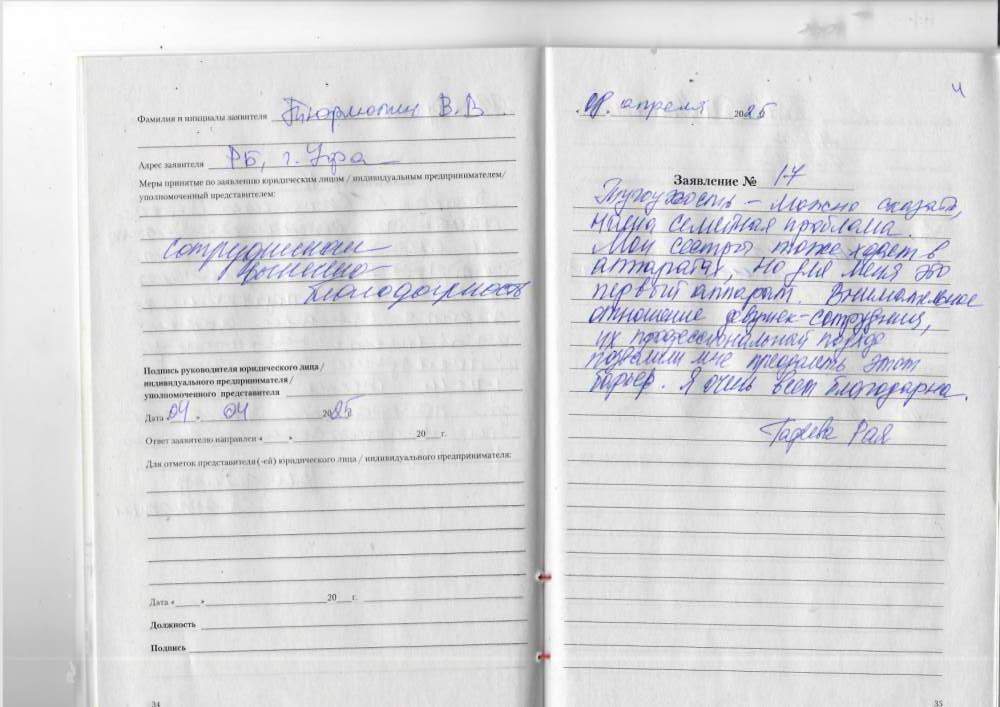 Фамилия и инициалы заявителя Тюрмотин В.В
Адрес заявителя РБ, г. Уфа
Меры принятые по заявлению юридическим лицом / индивидуальным предпринимателем/
уполномоченный представителем:
сотрудникам
вынесено
благодарность
Подпись руководителя юридического лица /
индивидуального предпринимателя /
уполномоченного представителя
Дата «04» 04 2025
Ответ заявителю направлен «____» ____ 20__ г.
Для отметок представителя (-ей) юридического лица / индивидуального предпринимателя:
Дата «____» ____ 20__ г.
Должность
Подпись
34
4
08. апреля 2025
Заявление № 17
Тугоухость – можно сказать,
наша семейная проблема.
Мои сестры тоже ходят в
аппаратах, но для меня это
первый аппарат. Внимательное
отношение девушек-сотрудниц,
их профессиональный подход
позволили мне преодолеть этот
барьер. Я очень всем благодарна.
Гадеева Рая
35